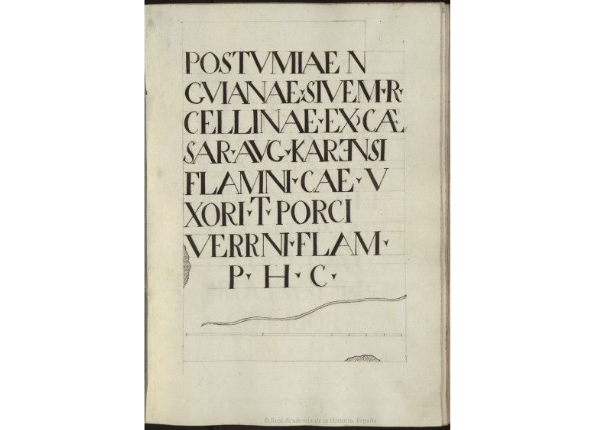 POSTVMIAE N
GVIANAE·SIVEM·R·
CELLINAE·EX·CÆ
SAR·AVG·KARENSI
FLAMNI·CAE·V
XORI·T·PORCI
VERRNI·FLAM·
P·H·C·
© Real Academia de la Historia. España